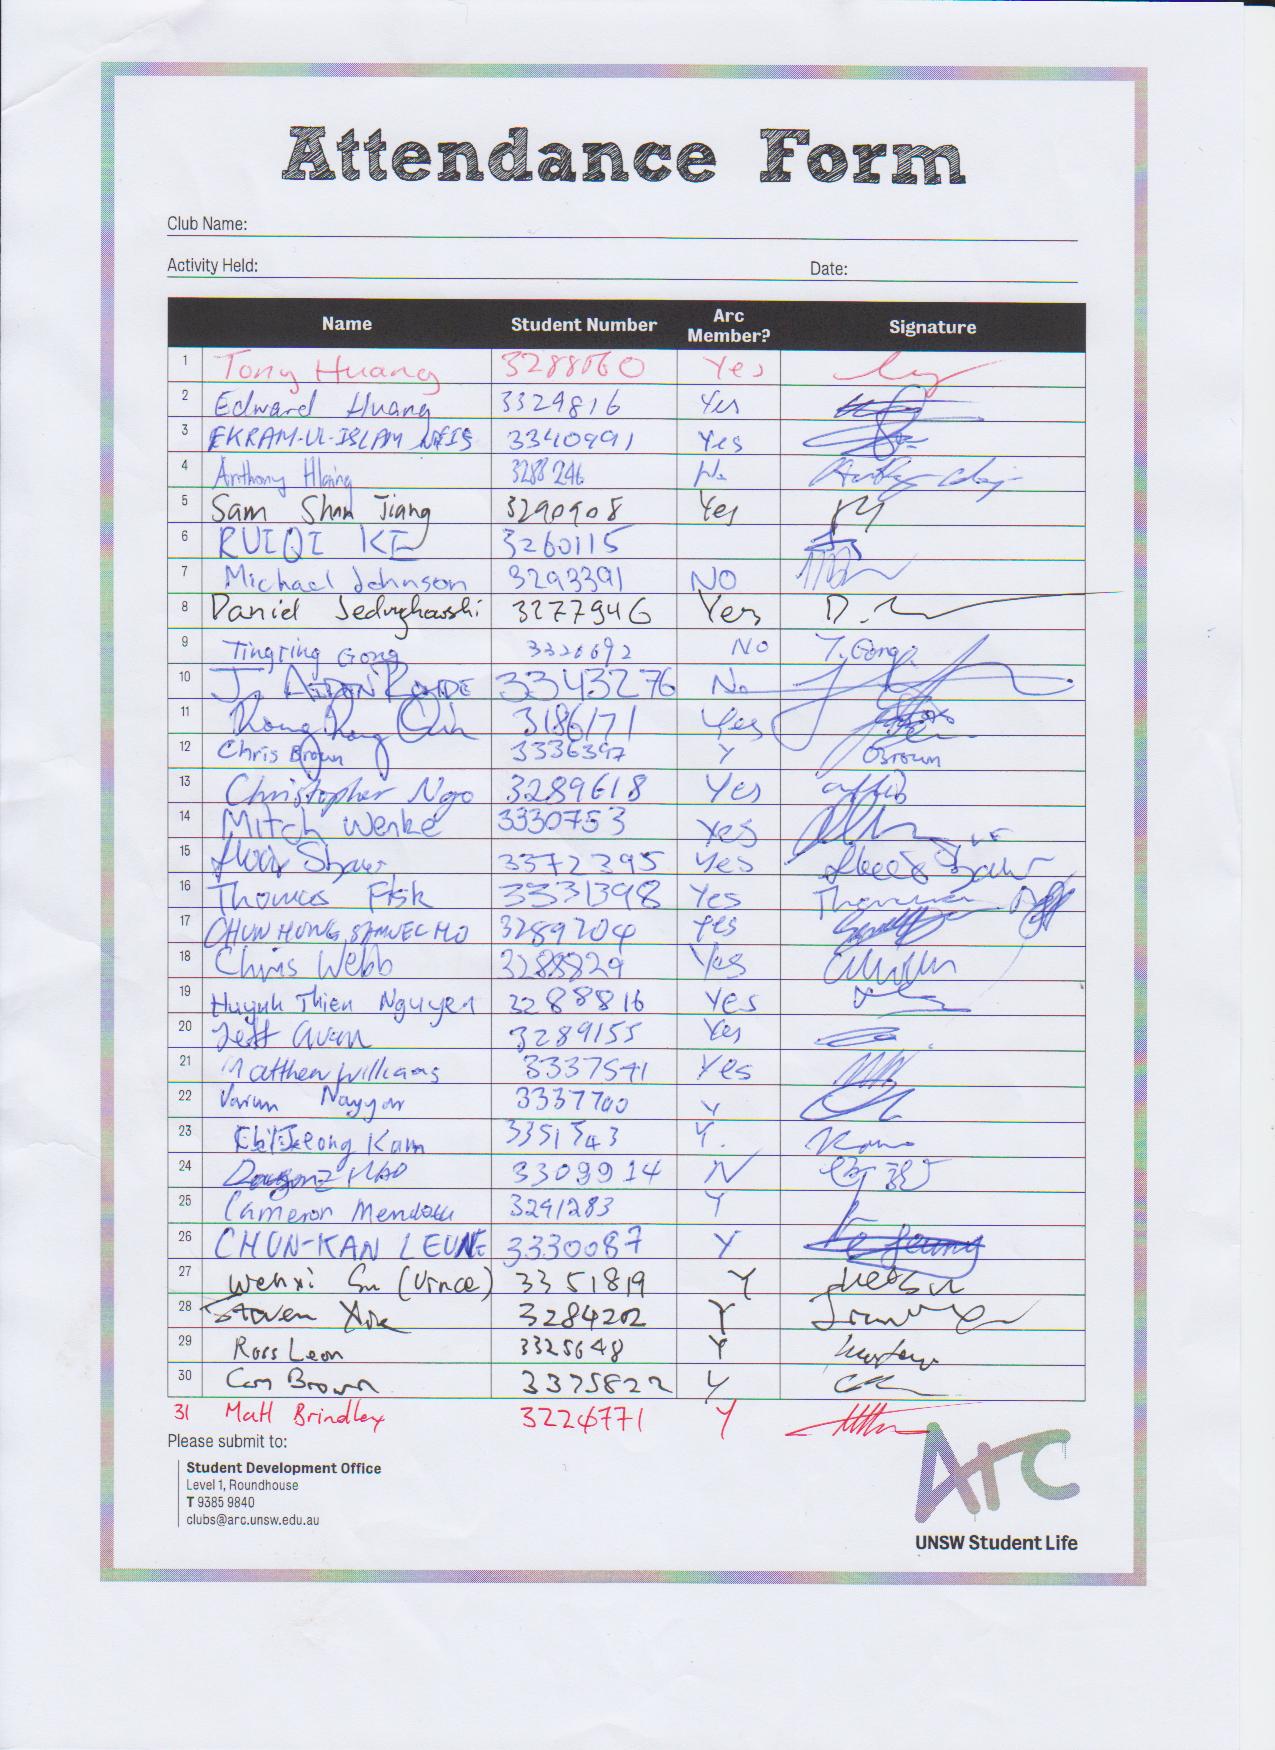 Attendance Form
Club Name:
Activity Held: Date:
Name Student Number Arc Member? Signature
1 Tony Huang 3288060 Yes
2 Edward Huang 3329816 Yes
3 EKRAM-UL-ISLAM NFIS 3340991 Yes
4 Anthony Hlaing 3288246 No
5 Sam Shan Jiang 3290908 Yes
6 RUIQI KE 3260115
7 Michael Johnson 3293391 NO
8 Daniel 3277946 Yes
9 Tingting Gong 3320692 NO T. Gong
10 J. 3343276 No
11 3186171 Yes
12 Chris Brown 3336397 Y Brown
13 Christopher Ngo 3289618 Yes
14 Mitch Wenke 3330753 Yes
15 Shaw 3372395 Yes
16 Thomas Fisk 3331398 Yes
17 CHUN HUNG, SAMUEL HO 3289204 Yes
18 Chris Webb 3288829 Yes
19 Huynh Thien Nguyen 3288816 Yes
20 Jeff 3289155 Yes
21 Matthew Williams 3337591 Yes
22 Varun Nayyar 3337700 Y
23 Kam 3351543 Y.
24 3309914 N
25 Cameron 3291283 Y
26 CHUN-KAN LEUNG 3330087 Y
27 Wenxi Su (Vince) 3351819 Y
28 Steven Xie 3284202 Y
29 Ross Leon 3325648 Y
30 Cam Brown 3375822 Y
31 Matt Brindley 3224771 Y
Please submit to:
Student Development Office
Level 1, Roundhouse
T 9385 9840
clubs@arc.unsw.edu.au
Arc
UNSW Student Life